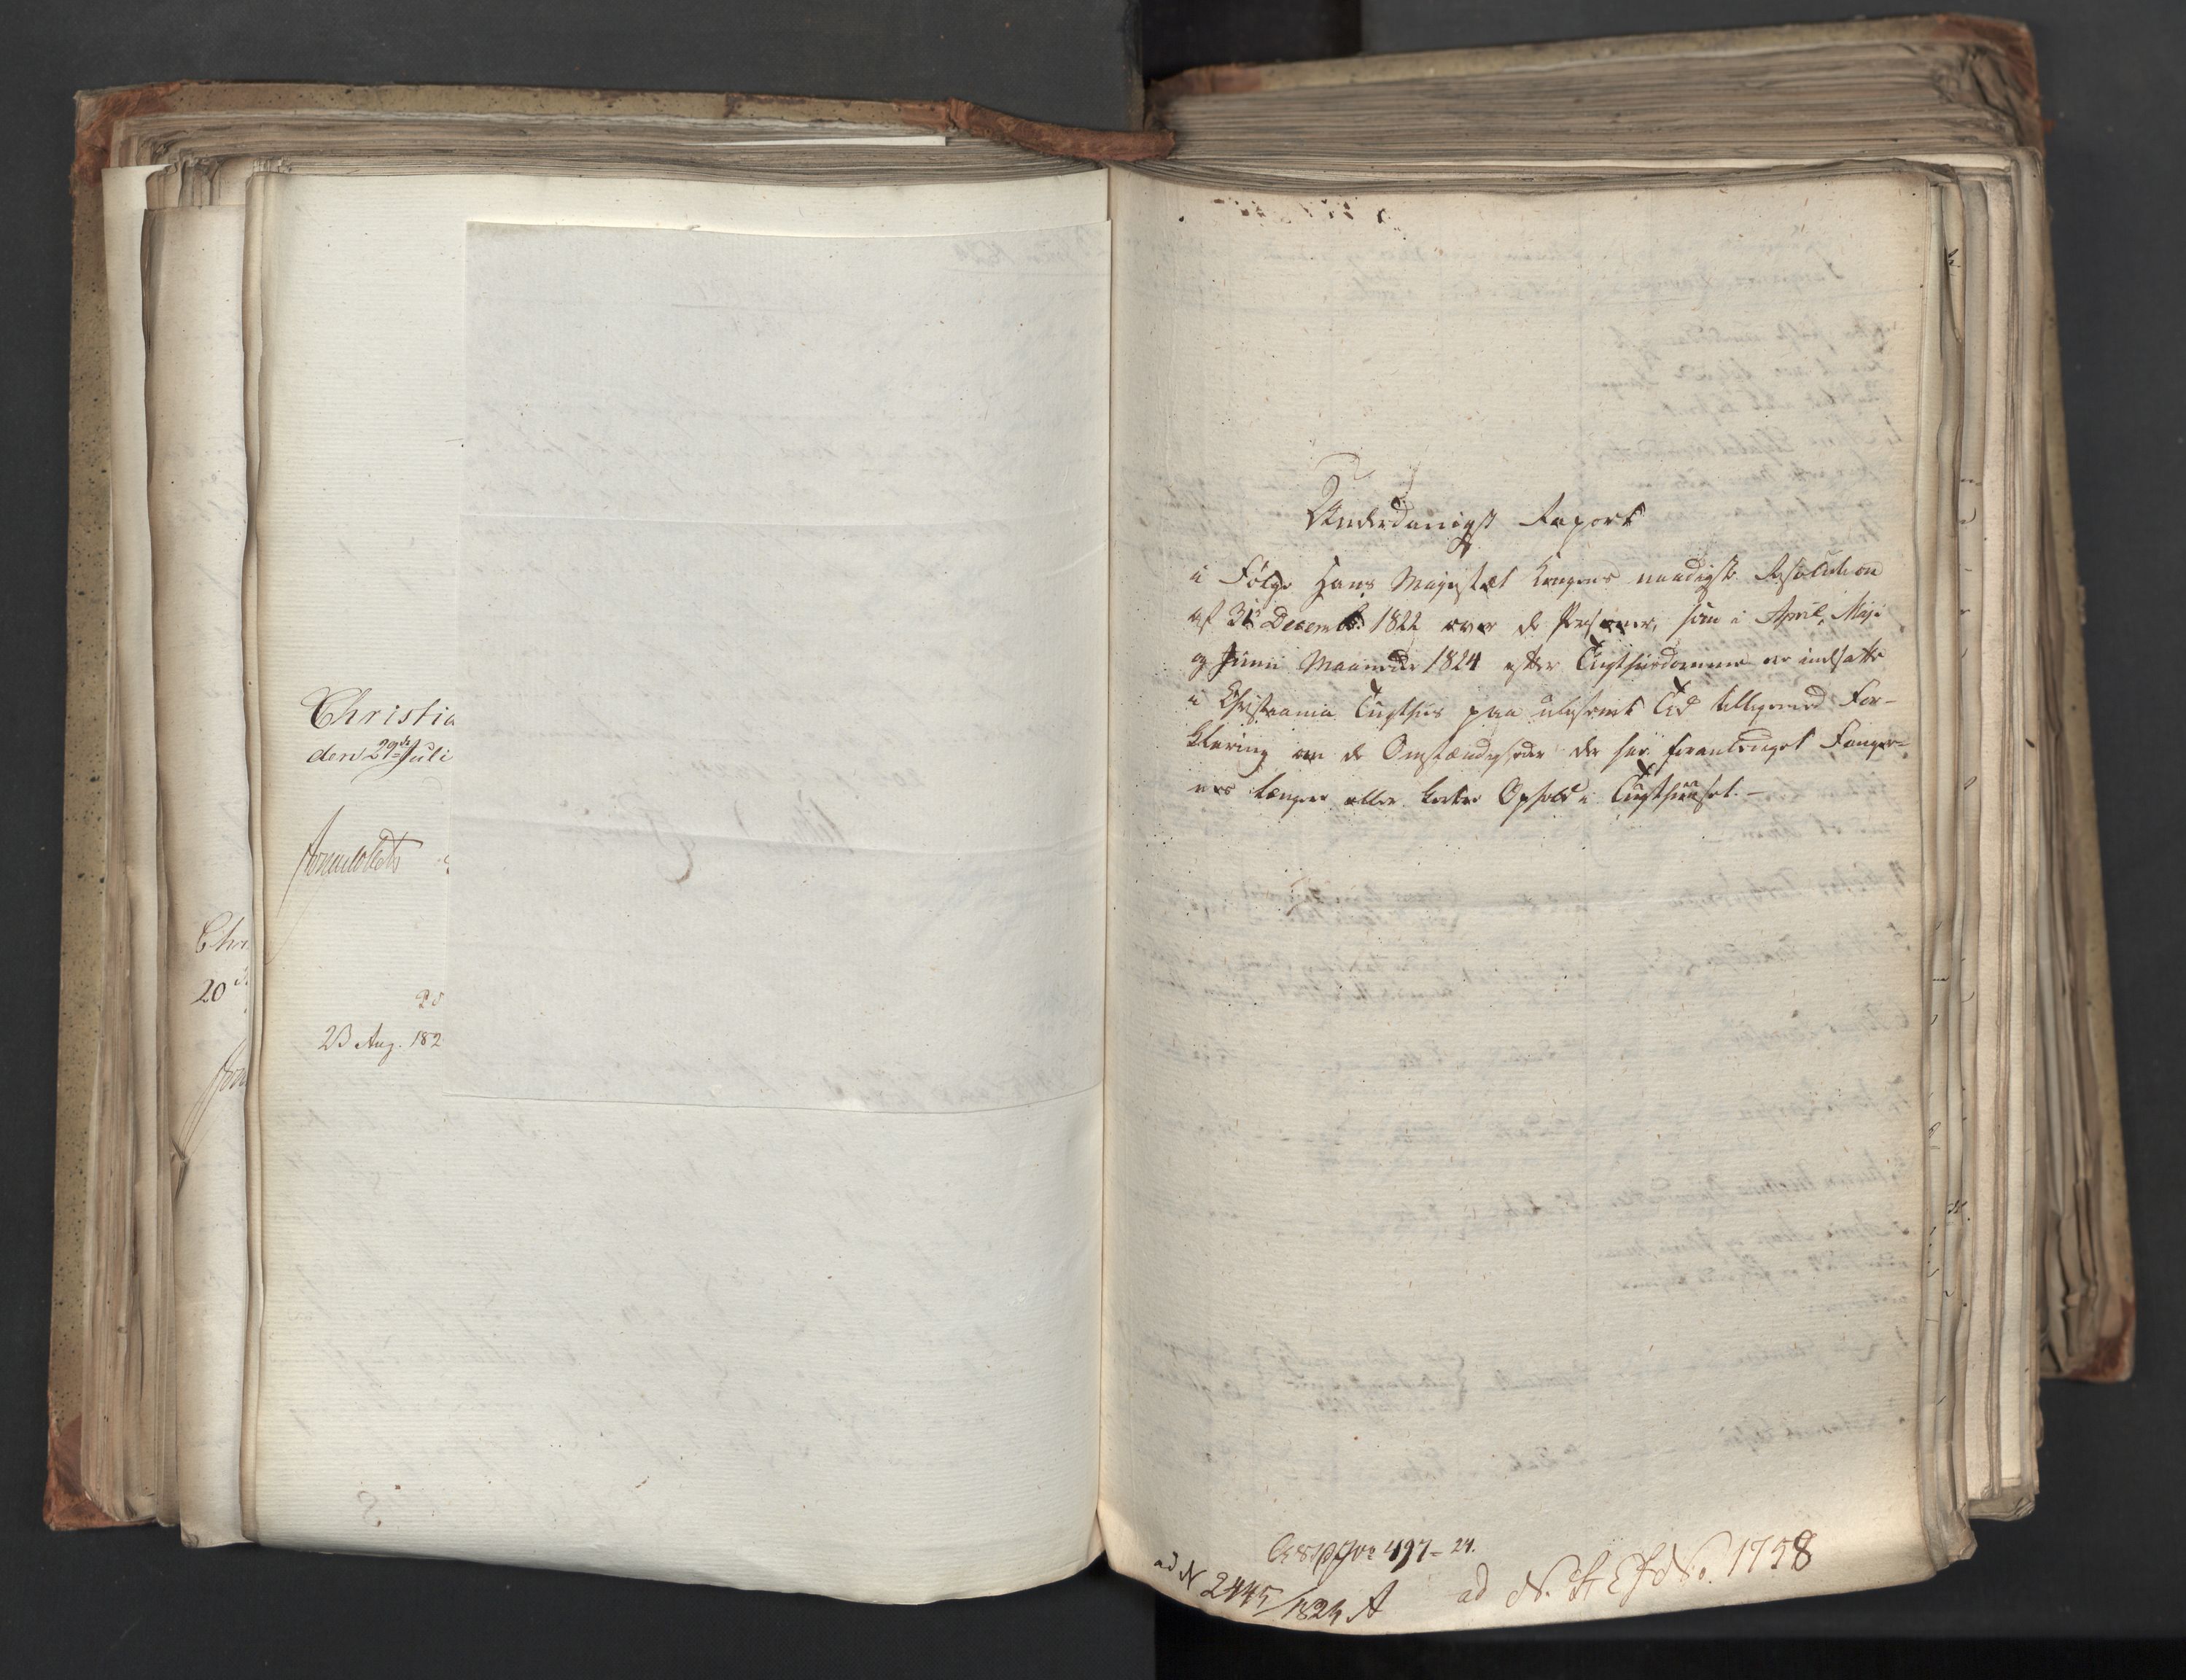 Christia
den 29de Juli
23 Aug. 182
Chri
20
Underdanigst Raport
i Følge Hans Majestæt Kongens naadigste Resolution
af 31 Decemb: 1822 over de Personer, som i April, Maji
og Junii Maaneder 1824 efter Tugthusdomme ere indsatte
i Christiania Tugthus paa ubestemt Tid tilligemed For-
klaring om de Omstændigheder der har foranlediget Fanger-
nes længere eller kortere Ophold i Tugthuuset.-
497 - 24.
ad N 2445/1824 A
ad N. St E J No. 1758